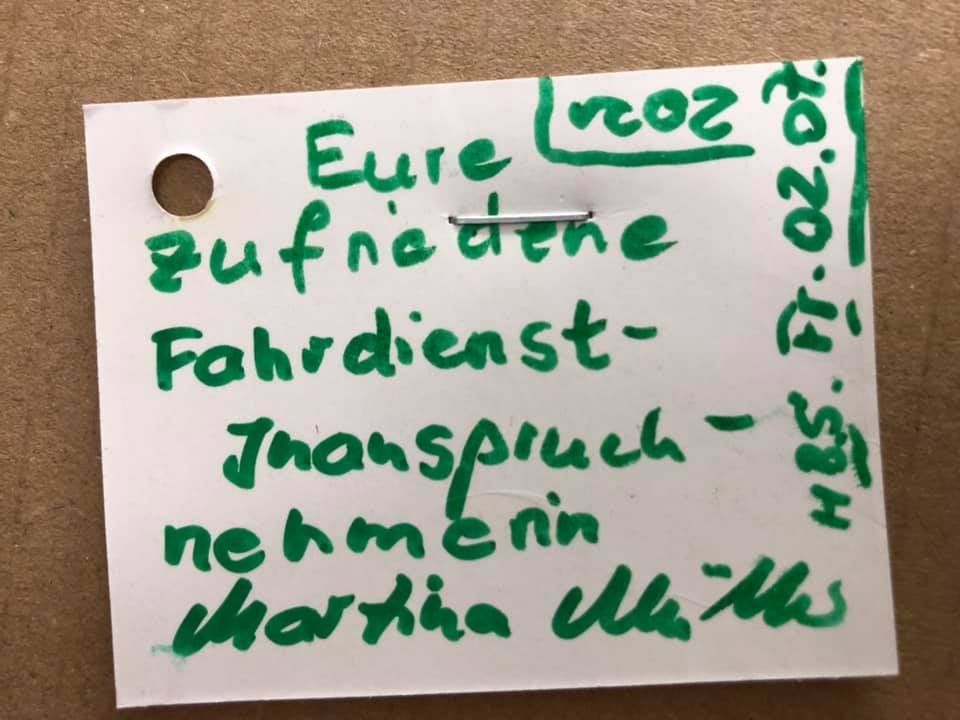 Eure
zufriedene
Fahrdienst-
Inanspruch-
nehmerin
Martina Müller
HBS. Fr. 02.07.